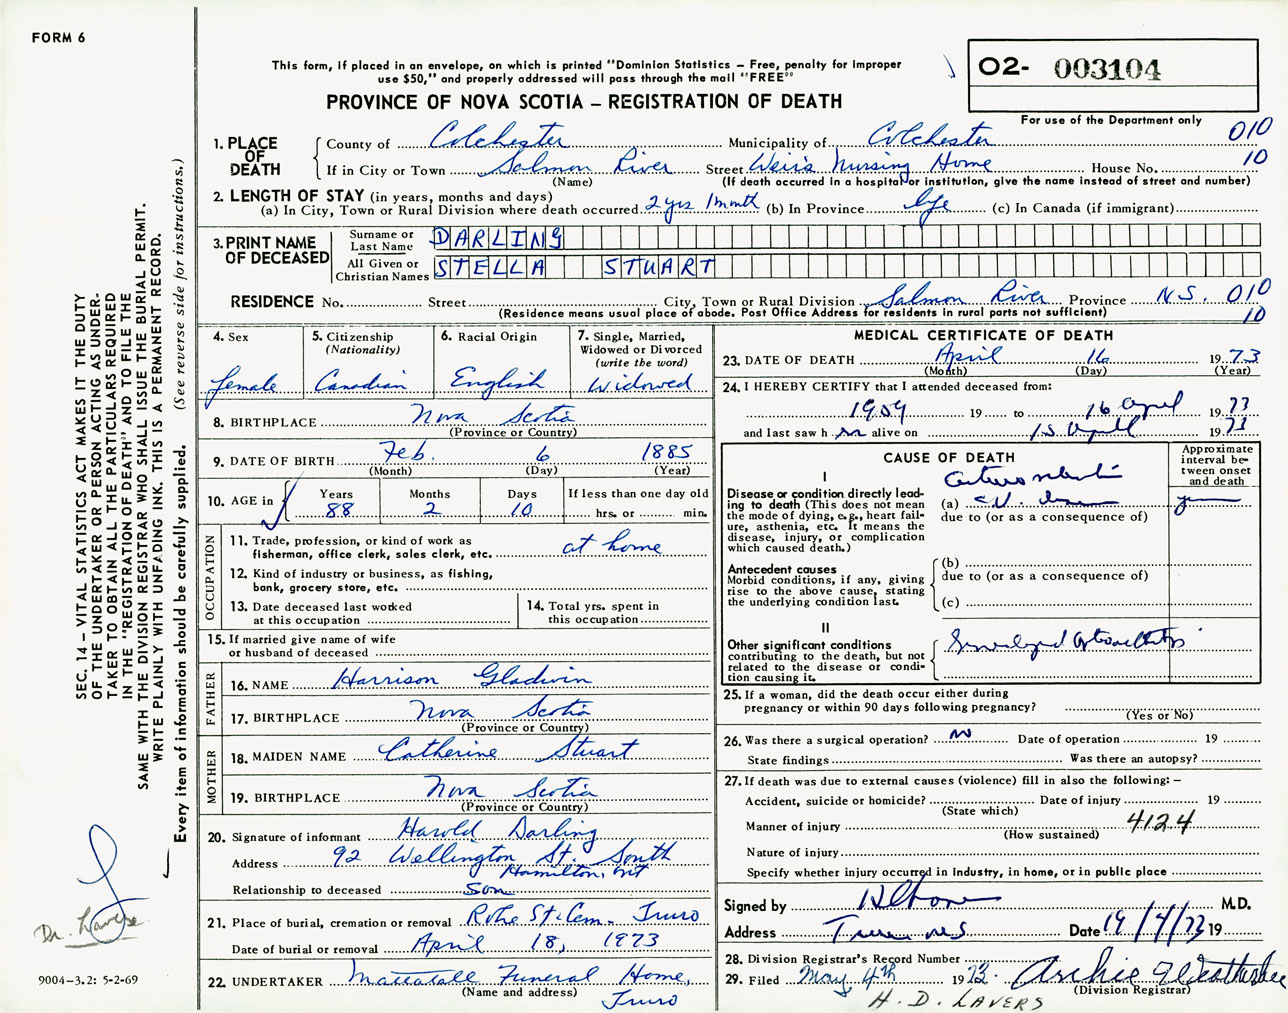 FORM 6
This form, if placed in an envelope, on which is printed "Dominion Statistics – Free, penalty for improper
use $50," and properly addressed will pass through the mail "FREE"
O2- 003104
PROVINCE OF NOVA SCOTIA – REGISTRATION OF DEATH
For use of the Department only
1. PLACE OF DEATH
County of Colchester Municipality of Colchester 010
If in City or Town Salmon River Street Weir's Nursing Home House No. 10
(Name) (If death occurred in a hospital or institution, give the name instead of street and number)
2. LENGTH OF STAY (in years, months and days)
(a) In City, Town or Rural Division where death occurred 2 yrs 1 month (b) In Province life (c) In Canada (if immigrant)
3. PRINT NAME OF DECEASED
Surname or Last Name DARLING
All Given or Christian Names STELLA STUART
RESIDENCE No. Street City, Town or Rural Division Salmon River Province N.S. 010
(Residence means usual place of abode. Post Office Address for residents in rural parts not sufficient) 10
4. Sex
female
5. Citizenship
(Nationality)
Canadian
6. Racial Origin
English
7. Single, Married,
Widowed or Divorced
(write the word)
Widowed
8. BIRTHPLACE Nova Scotia
(Province or Country)
9. DATE OF BIRTH Feb. 6 1885
(Month) (Day) (Year)
10. AGE in Years 88 Months 2 Days 10 If less than one day old
hrs. or min.
OCCUPATION
11. Trade, profession, or kind of work as
fisherman, office clerk, sales clerk, etc. at home
12. Kind of industry or business, as fishing,
bank, grocery store, etc.
13. Date deceased last worked
at this occupation
14. Total yrs. spent in
this occupation
15. If married give name of wife
or husband of deceased
FATHER
16. NAME Harrison Gladwin
17. BIRTHPLACE Nova Scotia
(Province or Country)
MOTHER
18. MAIDEN NAME Catherine Stuart
19. BIRTHPLACE Nova Scotia
(Province or Country)
20. Signature of informant Harold Darling
Address 92 Wellington St. South
Hamilton, Ont
Relationship to deceased son
21. Place of burial, cremation or removal Robie St. Cem. Truro
Date of burial or removal April 18, 1973
22. UNDERTAKER Mattatall Funeral Home,
(Name and address) Truro
MEDICAL CERTIFICATE OF DEATH
23. DATE OF DEATH April 16 1973
(Month) (Day) (Year)
24. I HEREBY CERTIFY that I attended deceased from:
1959 19 to 16 April 1973
and last saw her alive on 15 April 1973
CAUSE OF DEATH
Approximate
interval be-
tween onset
and death
I
Disease or condition directly lead-
ing to death (This does not mean
the mode of dying, e.g., heart fail-
ure, asthenia, etc. It means the
disease, injury, or complication
which caused death.)
(a)
due to (or as a consequence of)
Antecedent causes
Morbid conditions, if any, giving
rise to the above cause, stating
the underlying condition last.
(b)
due to (or as a consequence of)
(c)
II
Other significant conditions
contributing to the death, but not
related to the disease or condi-
tion causing it.
25. If a woman, did the death occur either during
pregnancy or within 90 days following pregnancy?
(Yes or No)
26. Was there a surgical operation? no Date of operation 19
State findings Was there an autopsy?
27. If death was due to external causes (violence) fill in also the following: –
Accident, suicide or homicide? Date of injury 19
(State which)
Manner of injury 4124
(How sustained)
Nature of injury
Specify whether injury occurred in industry, in home, or in public place
Signed by M.D.
Address Truro NS Date 19/4/73 19
28. Division Registrar's Record Number
29. Filed May 4th 1973 Archie
(Division Registrar)
H. D. LAVERS
SEC. 14 – VITAL STATISTICS ACT MAKES IT THE DUTY
OF THE UNDERTAKER OR PERSON ACTING AS UNDER-
TAKER TO OBTAIN ALL THE PARTICULARS REQUIRED
IN THE "REGISTRATION OF DEATH" AND TO FILE THE
SAME WITH THE DIVISION REGISTRAR WHO SHALL ISSUE THE BURIAL PERMIT.
WRITE PLAINLY WITH UNFADING INK. THIS IS A PERMANENT RECORD.
Every item of information should be carefully supplied. (See reverse side for instructions.)
Dr. Lavers
9004–3.2: 5-2-69